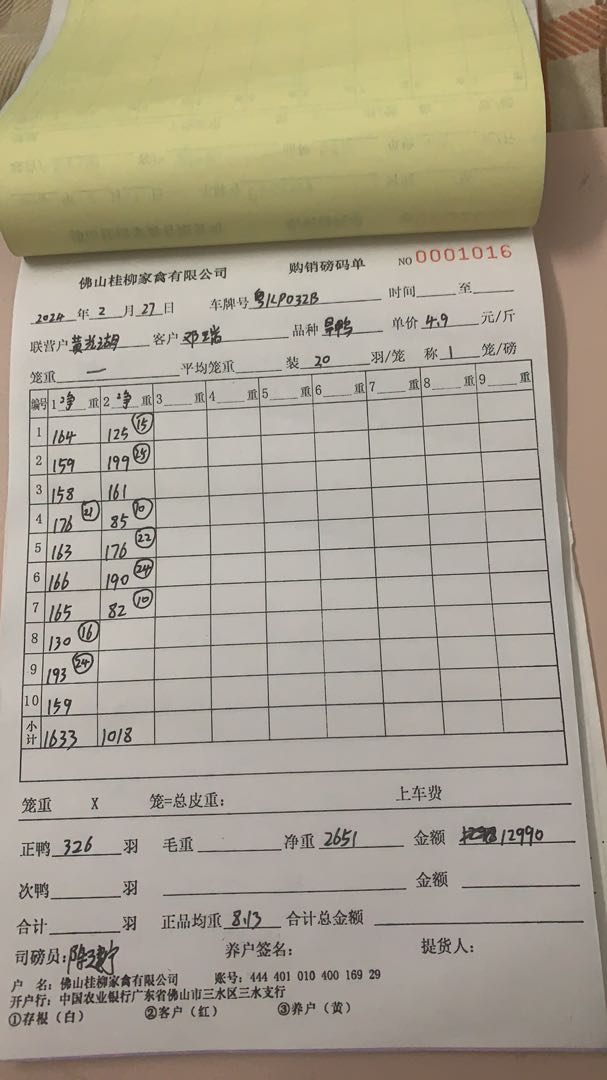 佛山桂柳家禽有限公司 购销磅码单 NO 0001016
2024 年 2 月 27 日 车牌号 粤KP032B 时间 至
联营户 黄光湖 客户 邓瑞 品种 旱鸭 单价 4.9 元/斤
笼重 一 平均笼重 装 20 羽/笼 称 1 笼/磅
编号 1 净 重 2 净 重 3 重 4 重 5 重 6 重 7 重 8 重 9 重
1 164 125 15
2 159 199 25
3 158 161
4 176 21 85 10
5 163 176 22
6 166 190 24
7 165 82 10
8 130 16
9 193 24
10 159
小计 1633 1018
笼重 X 笼=总皮重： 上车费
正鸭 326 羽 毛重 净重 2651 金额 12990
次鸭 羽 金额
合计 羽 正品均重 8.13 合计总金额
司磅员： 养户签名： 提货人：
户 名：佛山桂柳家禽有限公司 账号：444 401 010 400 169 29
开户行：中国农业银行广东省佛山市三水区三水支行
①存根（白） ②客户（红） ③养户（黄）